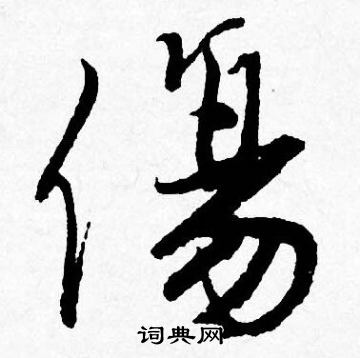 傷
词典网